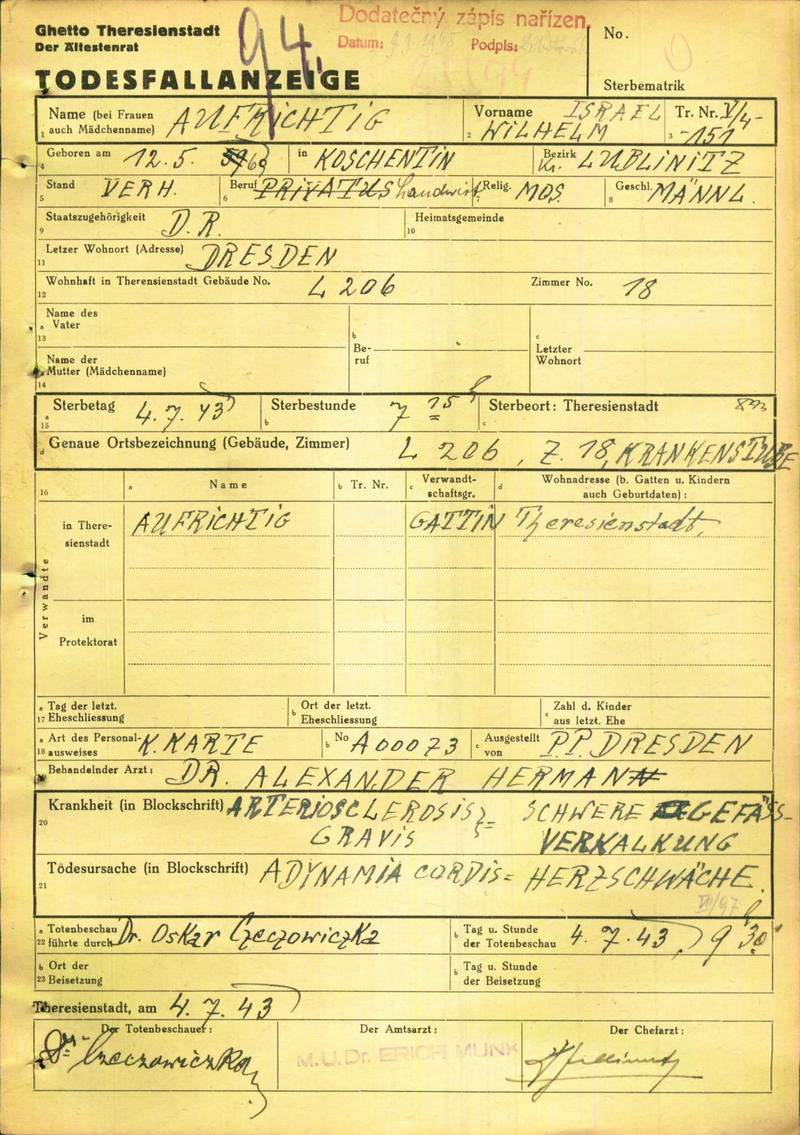 Ghetto Theresienstadt
Der Ältestenrat
TODESFALLANZEIGE
94.
Dodatečný zápis nařízen.
Datum:
Podpls:
No.
Sterbematrik
Name (bei Frauen
1 auch Mädchenname) AUFRICHTIG
Vorname ISRAEL
2 WILHELM
Tr. Nr. V/4-
3 -151
4 Geboren am 12.5. 63 in KOSCHENTIN Bezirk Kr. LUBLINITZ
5 Stand VERH. 6 Beruf PRIVATUS Landwirt 7 Relig. MOS. 8 Geschl. MÄNNL.
9 Staatszugehörigkeit D.R. 10 Heimatsgemeinde
11 Letzer Wohnort (Adresse) DRESDEN
12 Wohnhaft in Therensienstadt Gebäude No. L 206 Zimmer No. 18
Name des
a Vater
13
b Be-
ruf
c Letzter
Wohnort
Name der
a Mutter (Mädchenname)
14
a 15 Sterbetag 4.7.43 b Sterbestunde 7 15 c Sterbeort: Theresienstadt
d Genaue Ortsbezeichnung (Gebäude, Zimmer) L 206, Z. 18, KRANKENSTUBE
16 a Name b Tr. Nr. c Verwandt-
schaftsgr. d Wohnadresse (b. Gatten u. Kindern
auch Geburtdaten) :
Verwandte
in There-
sienstadt
AUFRICHTIG GATTIN Theresienstadt,
im
Protektorat
a Tag der letzt.
17 Eheschliessung
b Ort der letzt.
Eheschliessung
c Zahl d. Kinder
aus letzt. Ehe
a Art des Personal-
18 ausweises K. KARTE b No A 00073 c Ausgestellt
von P.P. DRESDEN
19 Behandelnder Arzt: DR. ALEXANDER HERMAN
Krankheit (in Blockschrift) ARTERIOSCLEROSIS = SCHWERE GEFÄSS-
20 GRAVIS VERKALKUNG
Tödesursache (in Blockschrift) ADYNAMIA CORDIS = HERZSCHWÄCHE.
21
a Totenbeschau
22 führte durch Dr. Oskar Czeczowiczka
b Tag u. Stunde
der Totenbeschau 4.7.43, 9 30
b Ort der
23 Beisetzung
b Tag u. Stunde
der Beisetzung
Theresienstadt, am 4.7.43
Der Totenbeschauer: Der Amtsarzt: Der Chefarzt:
Dr. Czeczowiczka
M.U.Dr. ERICH MUNK